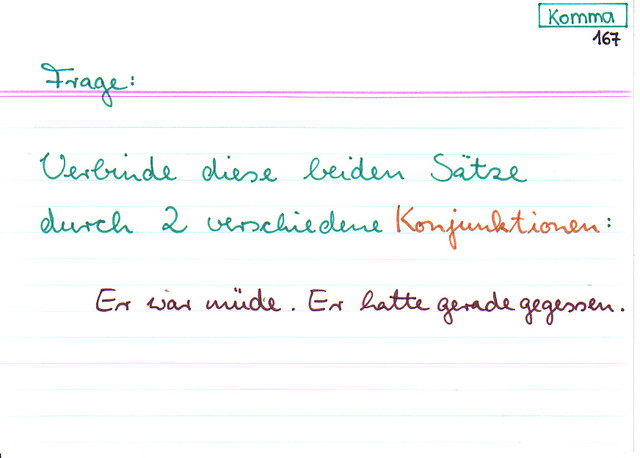 Komma
167
Frage:
Verbinde diese beiden Sätze
durch 2 verschiedene Konjunktionen:
Er war müde. Er hatte gerade gegessen.